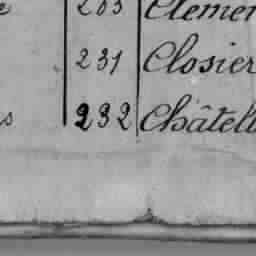 203 Clémen
231 Closier
s 232 Châtell